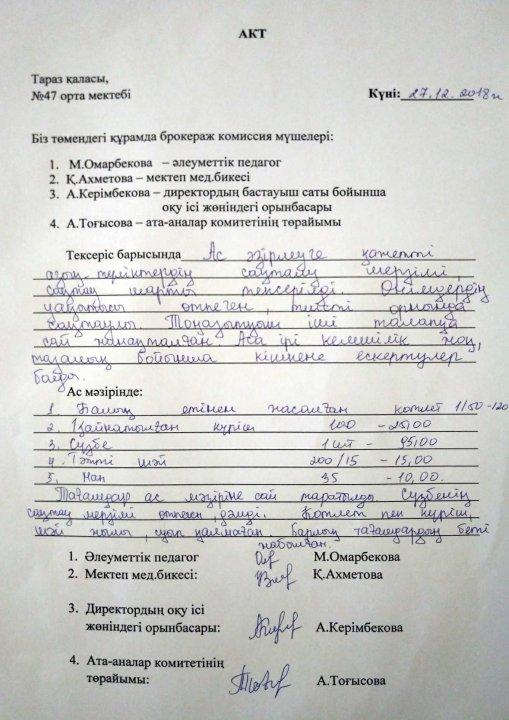 АКТ
Тараз қаласы,
№47 орта мектебі
Күні: 27.12.2018ж
Біз төмендегі құрамда брокераж комиссия мүшелері:
1. М.Омарбекова – әлеуметтік педагог
2. Қ.Ахметова – мектеп мед.бикесі
3. А.Керімбекова – директордың бастауыш саты бойынша
оқу ісі жөніндегі орынбасары
4. А.Тоғысова – ата-аналар комитетінің төрайымы
Тексеріс барысында Ас әзірлеуге қажетті
азық-түліктердің сақталу мерзімі,
сақтау шарты тексерілді. Өнімдердің
уақытысы өтпеген, тиісті орнында
сақтаулы. Тоңазытқыш іші талапқа
сай жинақталған. Аса ірі келешілік жоқ,
тазалық бойынша кішкене ескертулер
болды.
Ас мәзірінде:
1. Балық етінен жасалған котлет 1/50 -120
2. Қайнатылған күріш 100 - 25,00
3. Сүзбе 1 шт - 95,00
4. Тәтті шәй 200/15 - 15,00
5. Нан 35 - 10,00.
Тағамдар ас мәзіріне сай таратылды. Сүзбенің
сақтау мерзімі өтпеген, дәмді. Котлет пен күріш,
шәй жылы, суып қалмаған барлық тағамдардың беті
жабылған.
1. Әлеуметтік педагог М.Омарбекова
2. Мектеп мед.бикесі: Қ.Ахметова
3. Директордың оқу ісі
жөніндегі орынбасары: А.Керімбекова
4. Ата-аналар комитетінің
төрайымы: А.Тоғысова